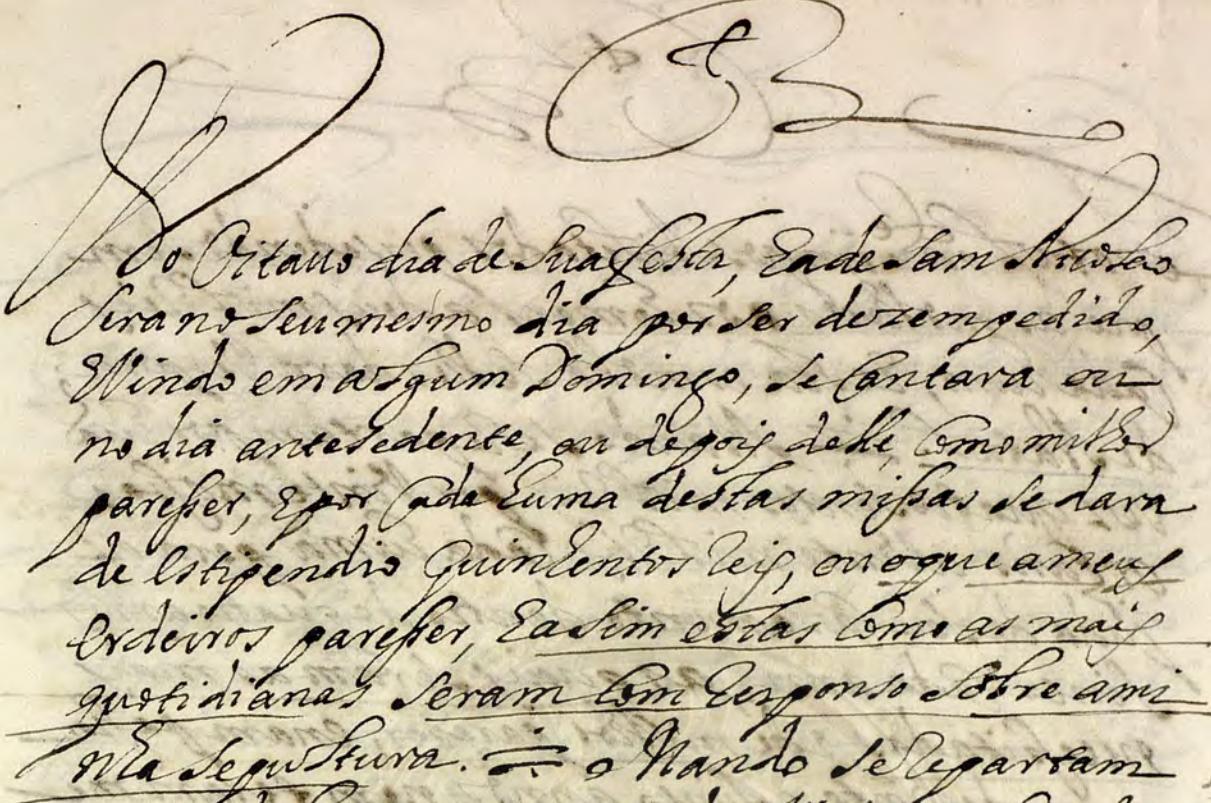 do Oitauo dia de sua festa, E a de sam Nicolao
sera no seu mesmo dia por ser dezempedido,
E Vindo em algum Domingo, se Cantara ou
no dia antesedente, ou depois delle, Como milhor
paresser, E por Cada huma destas missas se dara
de Estipendio Quinhentos reis, ou o que a meus
Erdeiros paresser, E asim estas Como as mais
quotidianas seram Com Responso sobre a mi
nha sepultura. Mando se Repartam